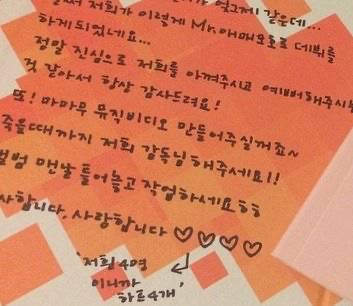 엊그제 같은데...
저희가 이렇게 Mr.애매모호로 데뷔를
하게되었네요...
정말 진심으로 저희를 아껴주시고 예뻐해주시는
것 같아서 항상 감사드려요!
또! 마마무 뮤직비디오 만들어주실꺼죠~
죽을때까지 저희 감독님해주세요!!
맨날 틀어놓고 작업하세요ㅎㅎ
사랑합니다 ♡♡♡♡
'저희4명
이니까
하트4개'